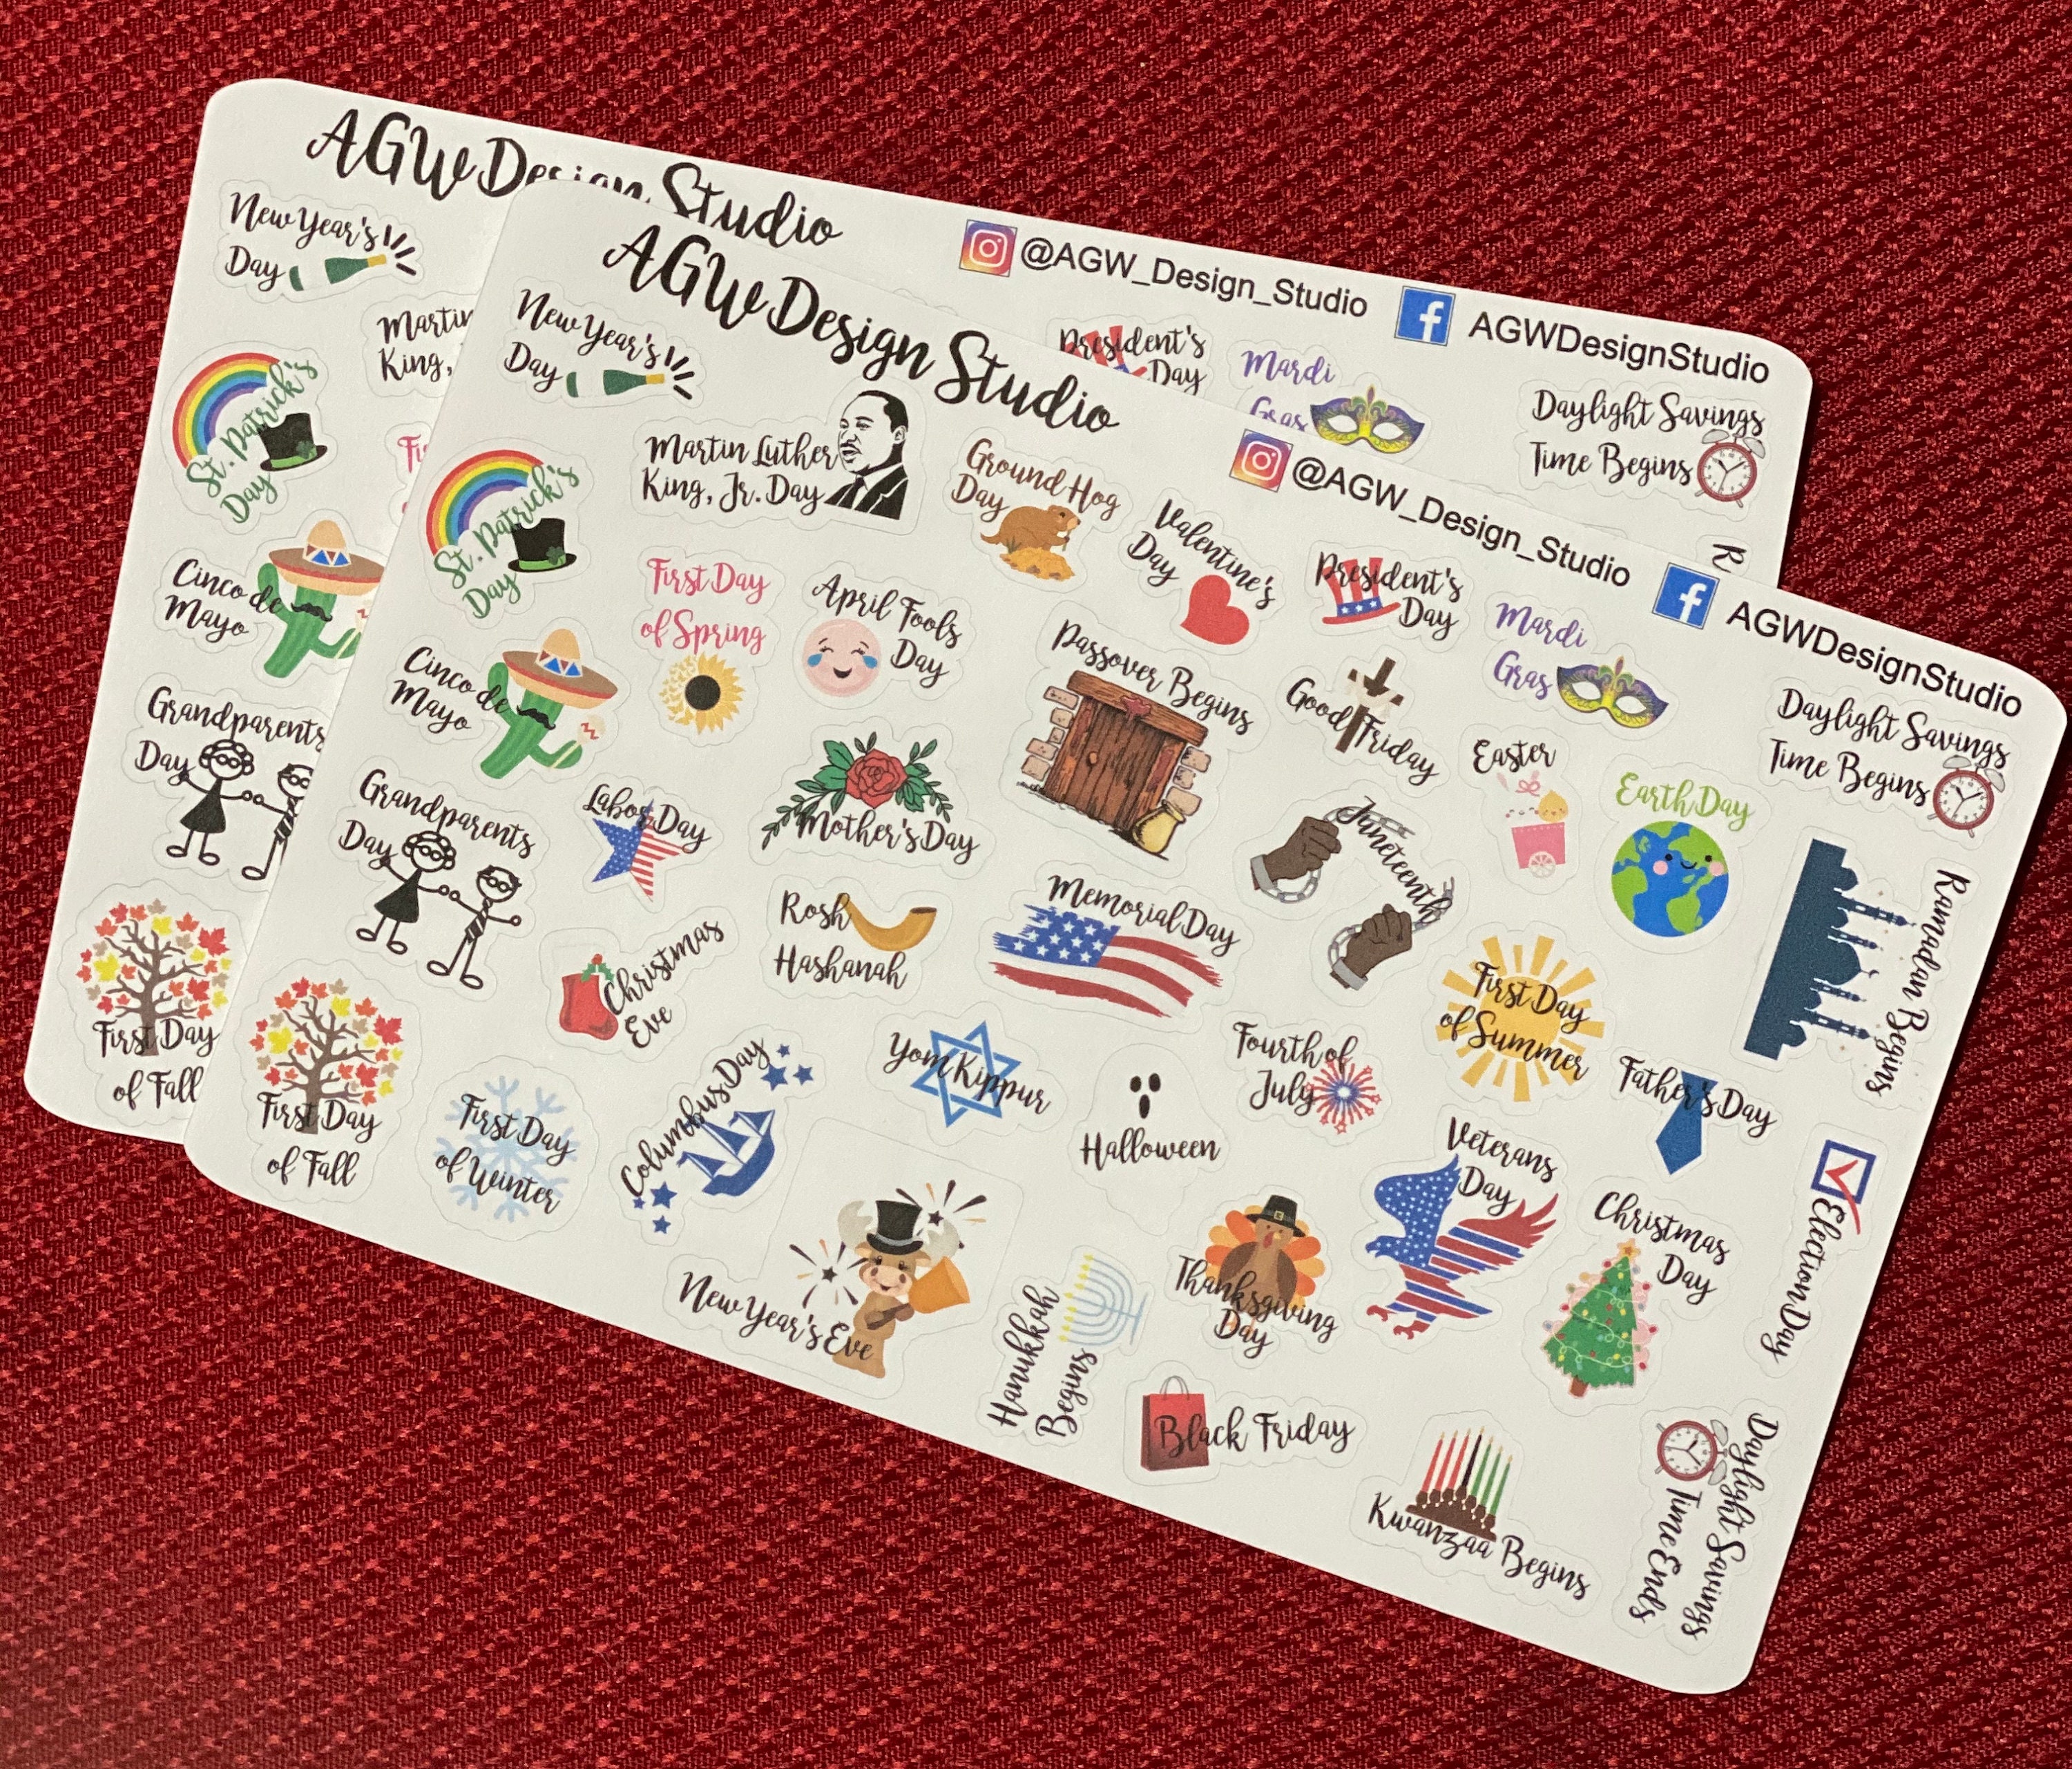 AGW Design Studio
@AGW_Design_Studio
AGWDesignStudio
New Year's
Day
Martin
King,
President's
Day
Mardi
Gras
Daylight Savings
Time Begins
St. Patrick's
Day
Cinco de
Mayo
Grandparents
Day
First Day
of Fall
AGW Design Studio
@AGW_Design_Studio
AGWDesignStudio
New Year's
Day
Martin Luther
King, Jr. Day
Ground Hog
Day
Valentine's
Day
President's
Day
Mardi
Gras
Daylight Savings
Time Begins
St. Patrick's
Day
First Day
of Spring
April Fools
Day
Passover Begins
Good Friday
Easter
Earth Day
Ramadan Begins
Cinco de
Mayo
Mother's Day
Memorial Day
Juneteenth
First Day
of Summer
Father's Day
Grandparents
Day
Labor Day
Rosh
Hashanah
Fourth of
July
Christmas
Eve
Yom Kippur
Halloween
Veterans
Day
Election Day
First Day
of Fall
First Day
of Winter
Columbus Day
New Year's Eve
Hanukkah
Begins
Thanksgiving
Day
Christmas
Day
Black Friday
Kwanzaa Begins
Daylight Savings
Time Ends